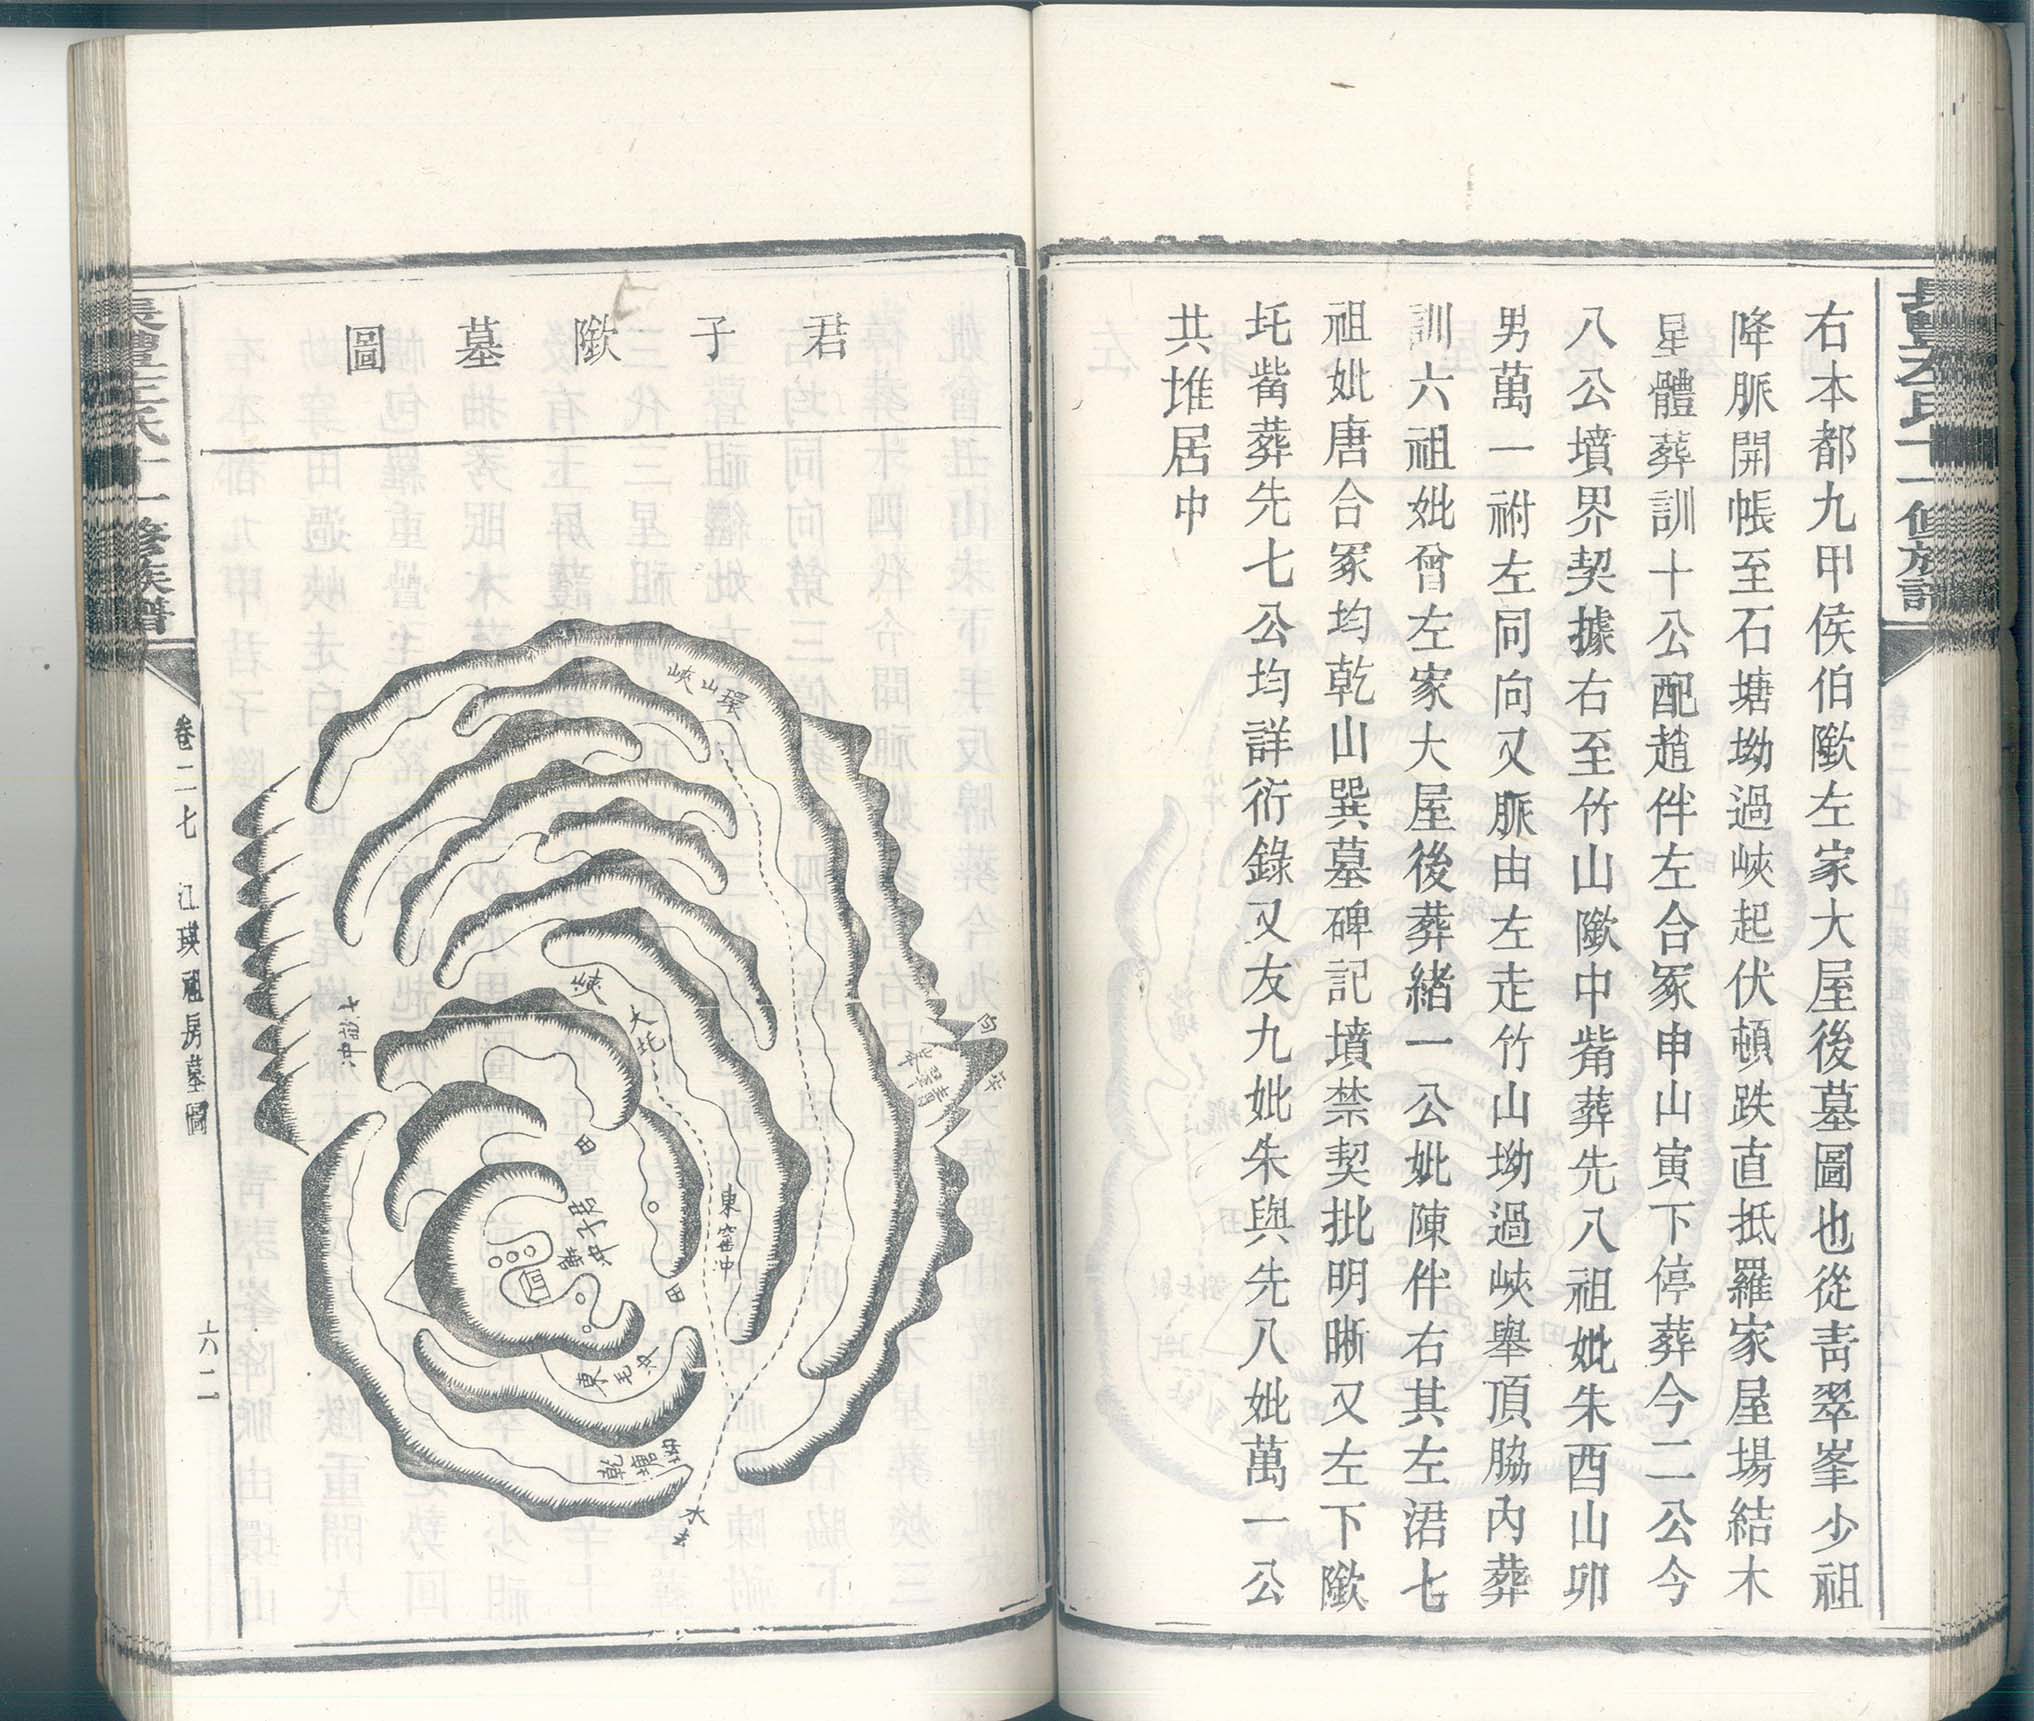 右本都九甲侯伯隞左家大屋後墓圖也從靑翠峯少祖
降脈開帳至石塘坳過峽起伏頓跌直抵羅家屋場結木
星體葬訓十公配趙伴左合冢申山寅下停葬今二公今
八公墳界契據右至竹山隞中觜葬先八祖妣朱酉山卯
男萬一祔左同向又脈由左走竹山坳過峽舉頂脇內葬
訓六祖妣曾左家大屋後葬緒一公妣陳伴右其左涒七
祖妣唐合冢均乾山巽墓碑記墳禁契批明晰又左下隞
圫觜葬先七公均詳衍錄又友九妣朱與先八妣萬一公
共堆居中
君子隞墓圖
環山峽
峽
大圫
田
東客冲
君子坳
田
東毛冲
乾塘坳
水去
卷二七 江瑛祖房墓圖
六二
十一修族譜